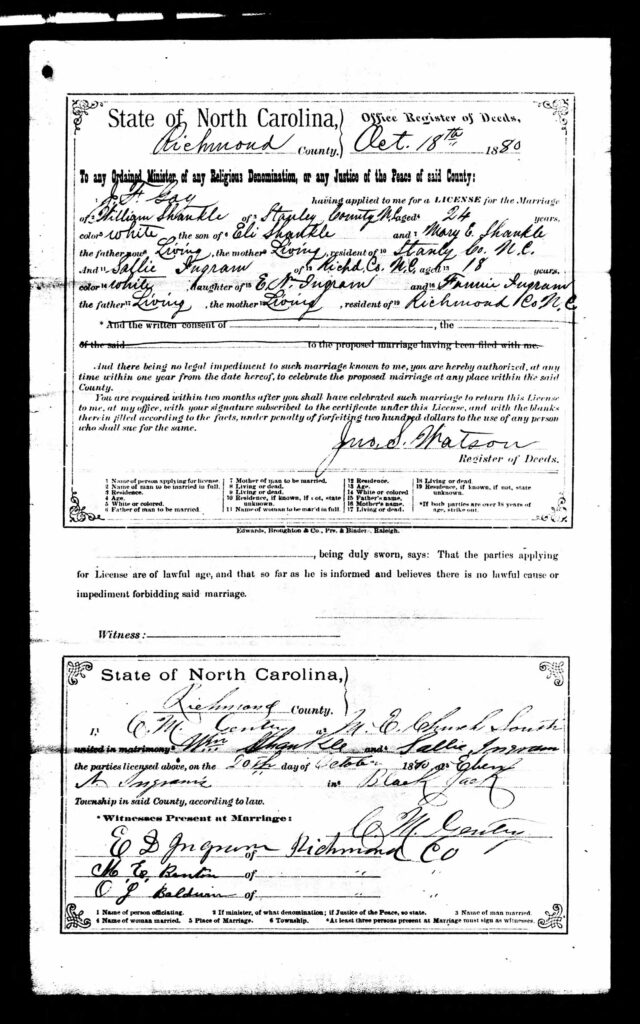 State of North Carolina, Office Register of Deeds,
Richmond County. Oct. 18th 1880
To any Ordained Minister, of any Religious Denomination, or any Justice of the Peace of said County:
J. F. Gay having applied to me for a LICENSE for the Marriage
of William Shankle of Stanley County N.C. aged 24 years.
color White the son of Eli Shankle and Mary E. Shankle
the father now Living, the mother Living, resident of Stanly Co. N.C.
And Sallie Ingram of Richd. Co. N.C. aged 18 years.
color White daughter of E. N. Ingram and Fannie Ingram
the father Living, the mother Living, resident of Richmond Co N.C
* And the written consent of , the
of the said to the proposed marriage having been filed with me.
And there being no legal impediment to such marriage known to me, you are hereby authorized, at any
time within one year from the date hereof, to celebrate the proposed marriage at any place within the said
County.
You are required within two months after you shall have celebrated such marriage to return this License
to me, at my office, with your signature subscribed to the certificate under this License, and with the blanks
therein filled according to the facts, under penalty of forfeiting two hundred dollars to the use of any person
who shall sue for the same.
Jno. S. Watson
Register of Deeds.
1 Name of person applying for license.
2 Name of man to be married in full.
3 Residence.
4 Age.
5 White or colored
6 Father of man to be married.
7 Mother of man to be married.
8 Living or dead.
9 Living or dead.
10 Residence, if known, if not, state
unknown.
11 Name of woman to be mar'd in full
12 Residence.
13 Age.
14 White or colored
15 Father's name.
16 Mother's name.
17 Living or dead.
18 Living or dead.
19 Residence, if known, if not, state
unknown.
*If both parties are over 18 years of
age, strike out.
Edwards, Broughton & Co., Prs. & Binders, Raleigh.
, being duly sworn, says: That the parties applying
for License are of lawful age, and that so far as he is informed and believes there is no lawful cause or
impediment forbidding said marriage.
Witness:
State of North Carolina,
Richmond County.
I, C. M. Gentry a M. E. Church South
united in matrimony Wm Shankle and Sallie Ingram
the parties licensed above, on the 20th day of October 1880, at Eben
N Ingrams in Black Jack
Township in said County, according to law.
*Witnesses Present at Marriage: C M Gentry
E D Ingram of Richmond CO
M. E. of " "
O J Baldwin of " "
1 Name of person officiating. 2 If minister, of what denomination; if Justice of the Peace, so state. 3 Name of man married.
4 Name of woman married. 5 Place of Marriage. 6 Township. *At least three persons present at Marriage must sign as witnesses.